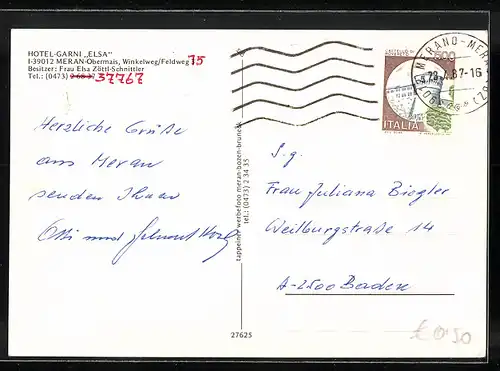 HOTEL-GARNI „ELSA"
I-39012 MERAN-Obermais, Winkelweg/Feldweg 15
Besitzer: Frau Elsa Zöttl-Schnittler
Tel.: (0473) 37767
Herzliche Grüße
aus Meran
senden Ihnen
Otti und Helmut
tappeiner werbefoto meran-bozen-bruneck
tel.: (0473) 2 34 35
27625
500
ITALIA
MERANO-MERAN
87-16
S.g.
Frau Juliana Biegler
Weilburgstraße 14
A-2500 Baden
€ 0,50